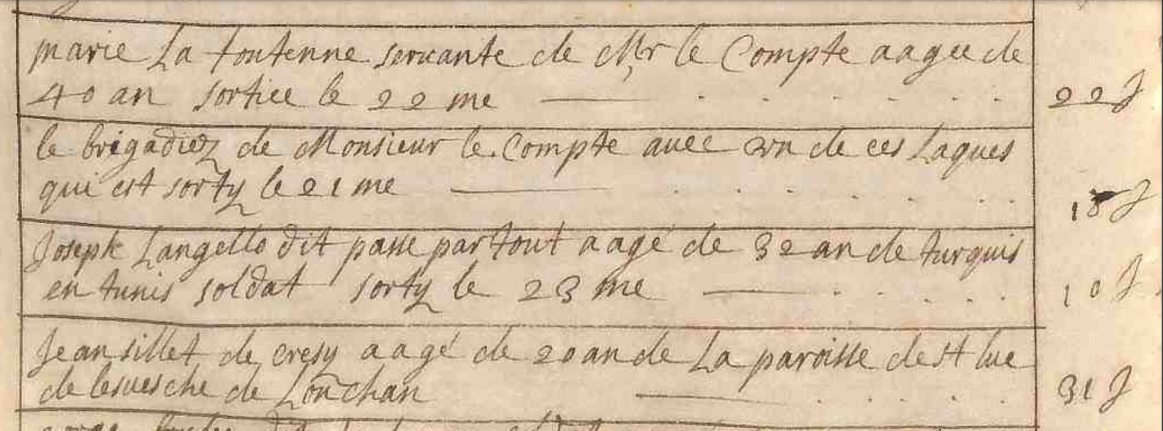 marie La fontenne seruante de Mr le Compte aagee de
40 an sortiee le 22 me 22 J
le brigadiez de Monsieur le Compte auec vn de ces Laques
qui est sorty le 21 me 18 J
Joseph Langello dit passe partout aagé de 32 an de turquis
en tunis soldat sorty le 23 me 10 J
Jean sillet de cresy aagé de 20 an de La paroisse de st lue
de lesuesche de Lonchan 31 J